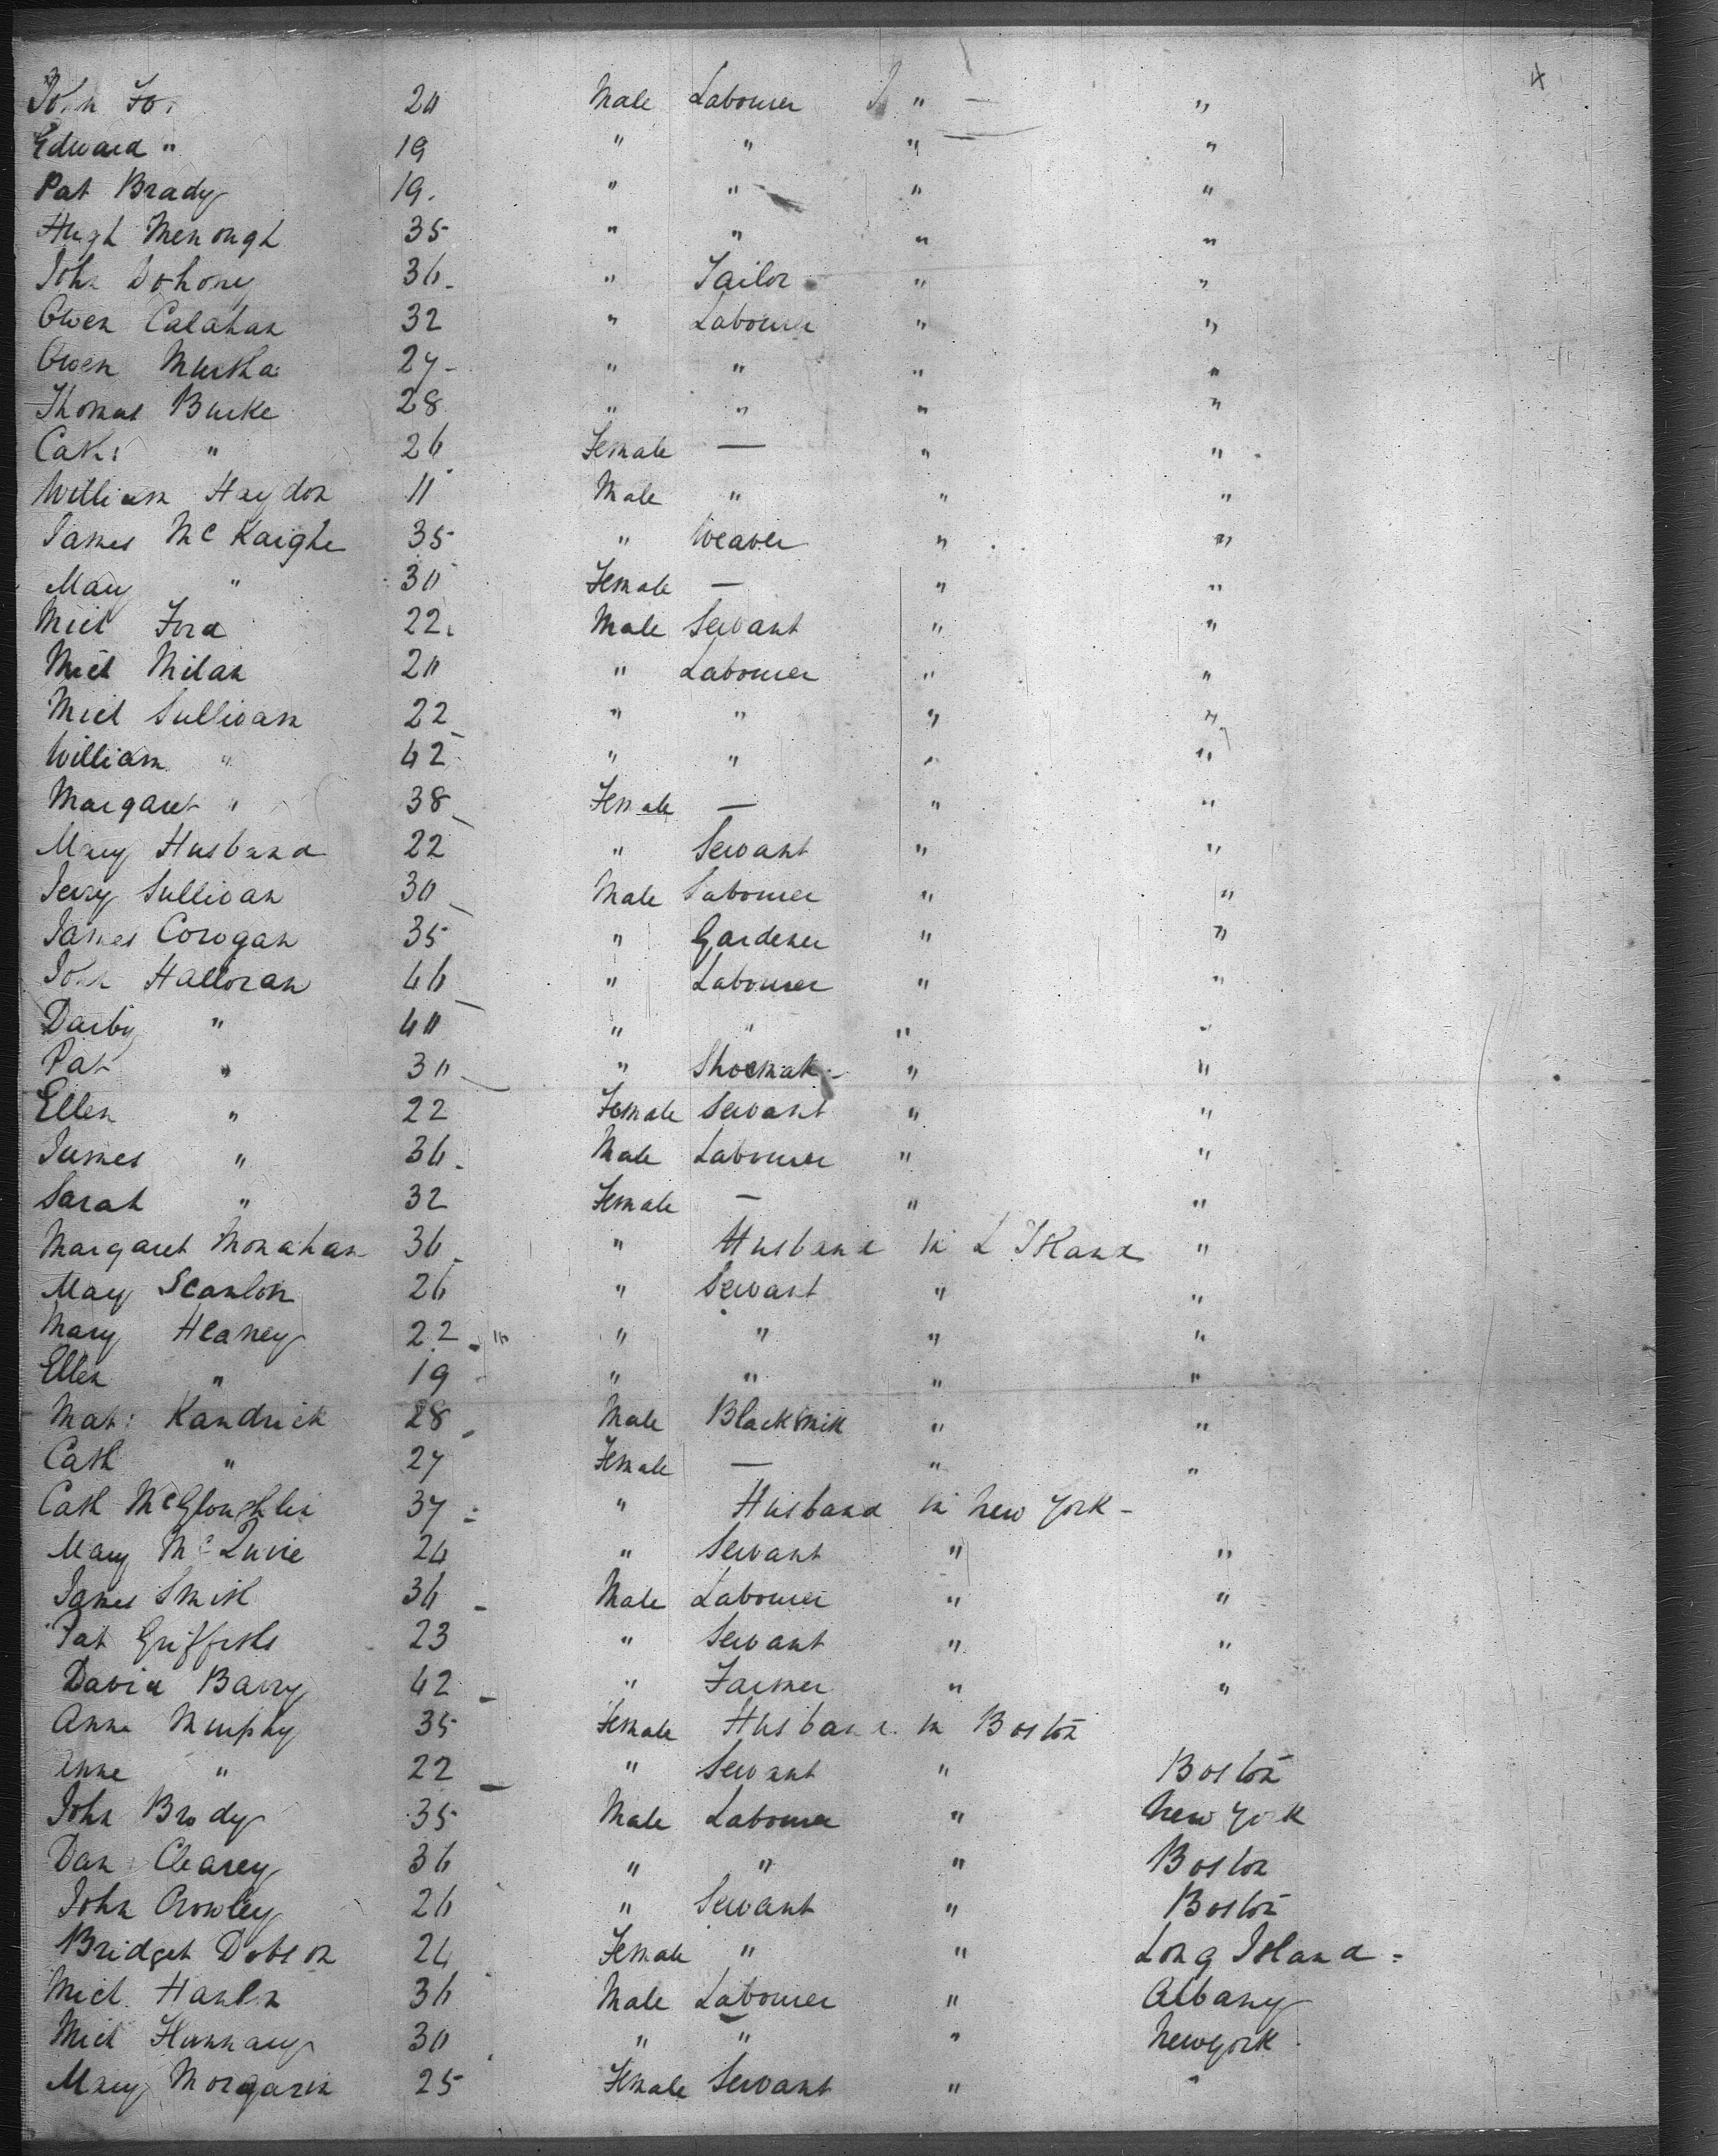 4
John Fo. 20 Male Labourer " — "
Edward " 19 " " " "
Pat Brady 19. " " " "
Hugh Menough 35 " " " "
John Dohony 36 " Tailor " "
Owen Calahan 32 " Labourer " "
Owen Murtha 27 " " " "
Thomas Burke 28 " " " "
Cath: " 26 Female — " "
William Haydon 11 Male " " "
James McKaighe 35 " Weaver " "
Mary " 30 Female — " "
Micl Ford 22 Male Servant " "
Micl Milan 20 " Labourer " "
Micl Sullivan 22 " " " "
William " 42 " " " "
Margaret " 38 Female — " "
Mary Husband 22 " Servant " "
Jerry Sullivan 30 Male Labourer " "
James Corogan 35 " Gardener " "
John Halloran 46 " Labourer " "
Darby " 40 " " " "
Pat " 30 " Shoemak " "
Ellen " 22 Female Servant " "
James " 36 Male Labourer " "
Sarah " 32 Female — " "
Margaret Monahan 36 " Husband in L Island "
Mary Scanlon 26 " Servant " "
Mary Heaney 22 " " " "
Ellen " 19 " " " "
Mat: Kandrick 28 Male Blacksmith " "
Cath " 27 Female — " "
Cath McGloughlin 37 " Husband in New York —
Mary Mc 24 " Servant " "
James Smith 36 Male Labourer " "
Pat Griffiths 23 " Servant " "
David Barry 42 " Farmer " "
Anne Murphy 35 Female Husband in Boston
Anne " 22 " Servant " Boston
John Brody 35 Male Labourer " New York
Dan Clearey 36 " " " Boston
John Crowley 26 " Servant " Boston
Bridget Dobson 24 Female " " Long Island
Micl. Hanln 36 Male Labourer " Albany
Micl Hunnary 30 " " " New York
Mary Morgarin 25 Female Servant " "